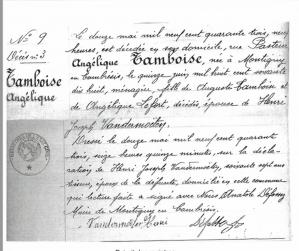 No 9
Décès no 3
Tamboise
Angélique
Le douze mai mil neuf cent quarante trois, neuf
heures, est décédée en son domicile, rue Pasteur
Angélique Tamboise, née à Montigny
en Cambrésis, le quinze juin mil huit cent soixante
dix huit, ménagère, fille de Auguste Tamboise et
de Angélique Lefort, décédés, épouse de Henri
Joseph Vandemoortèy
Dressé le douze mai mil neuf cent quarante
trois, seize heures quinze minutes, sur la décla-
ration de Henri Joseph Vandemoortèy, soixante sept ans
époux de la défunte, domicilié en cette commune
qui lecture faite a signé avec Nous Anatole
Maire de Montigny en Cambrésis.